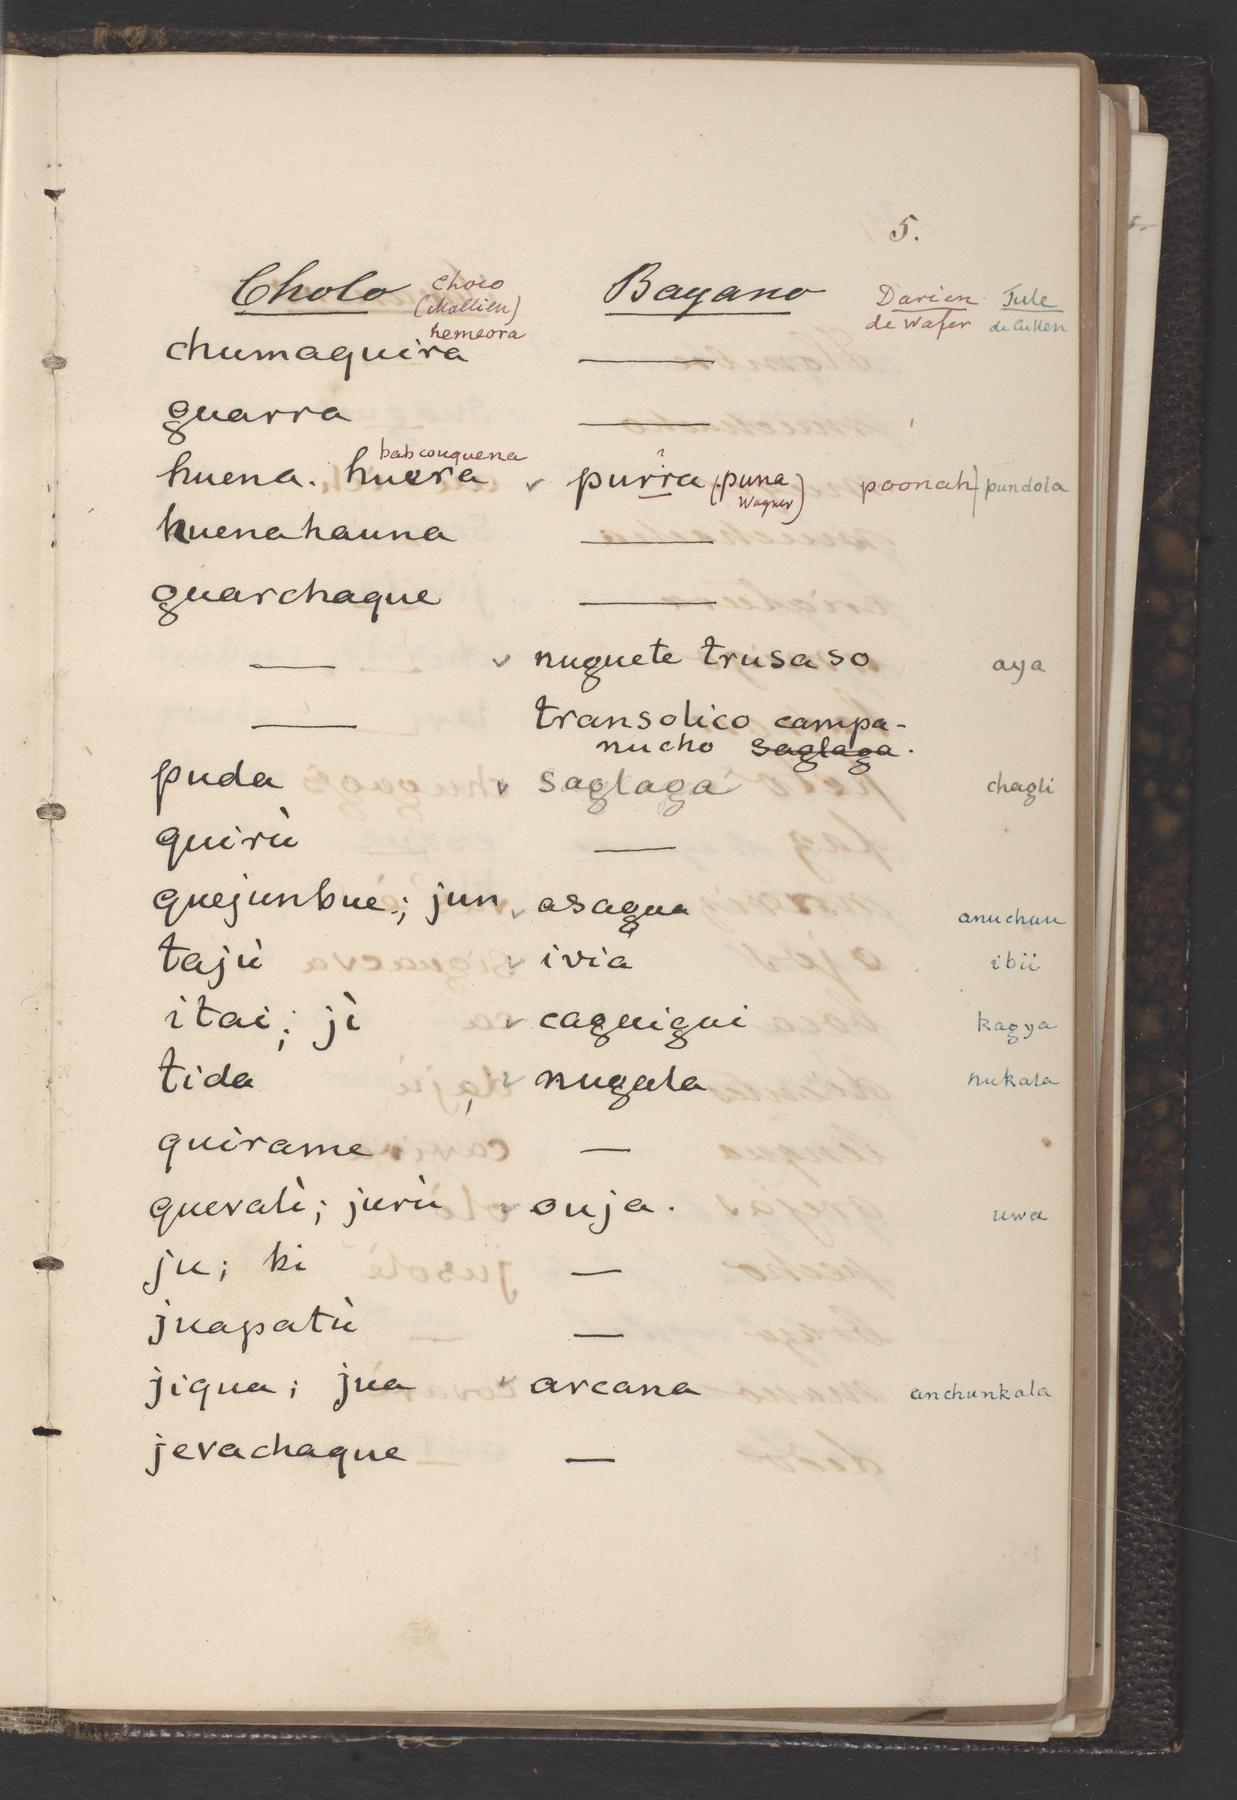 5.
Cholo choco Bayano Darien Tule
(Mollien) de Wafer de Cullen
hemeora
chumaquira —
guarra —
babcouquena
huena. huera ✓ purra (puna Wagner) poonah) pundola
huenahauna —
guarchaque —
— ✓ nuguete trusaso aya
— transolico campa-
nucho saglaga.
puda ✓ saglaga chagli
quirù —
quejunbue; jun ✓ asagua anuchuu
tajù ✓ ivia ibii
itai; jì ✓ caguigui kagya
tida ✓ nugala nukala
quirame —
quevalì; jurù ✓ ouja. uwa
ju; ki —
juapatù —
jiqua; jua ✓ arcana anchunkala
jevachaque —